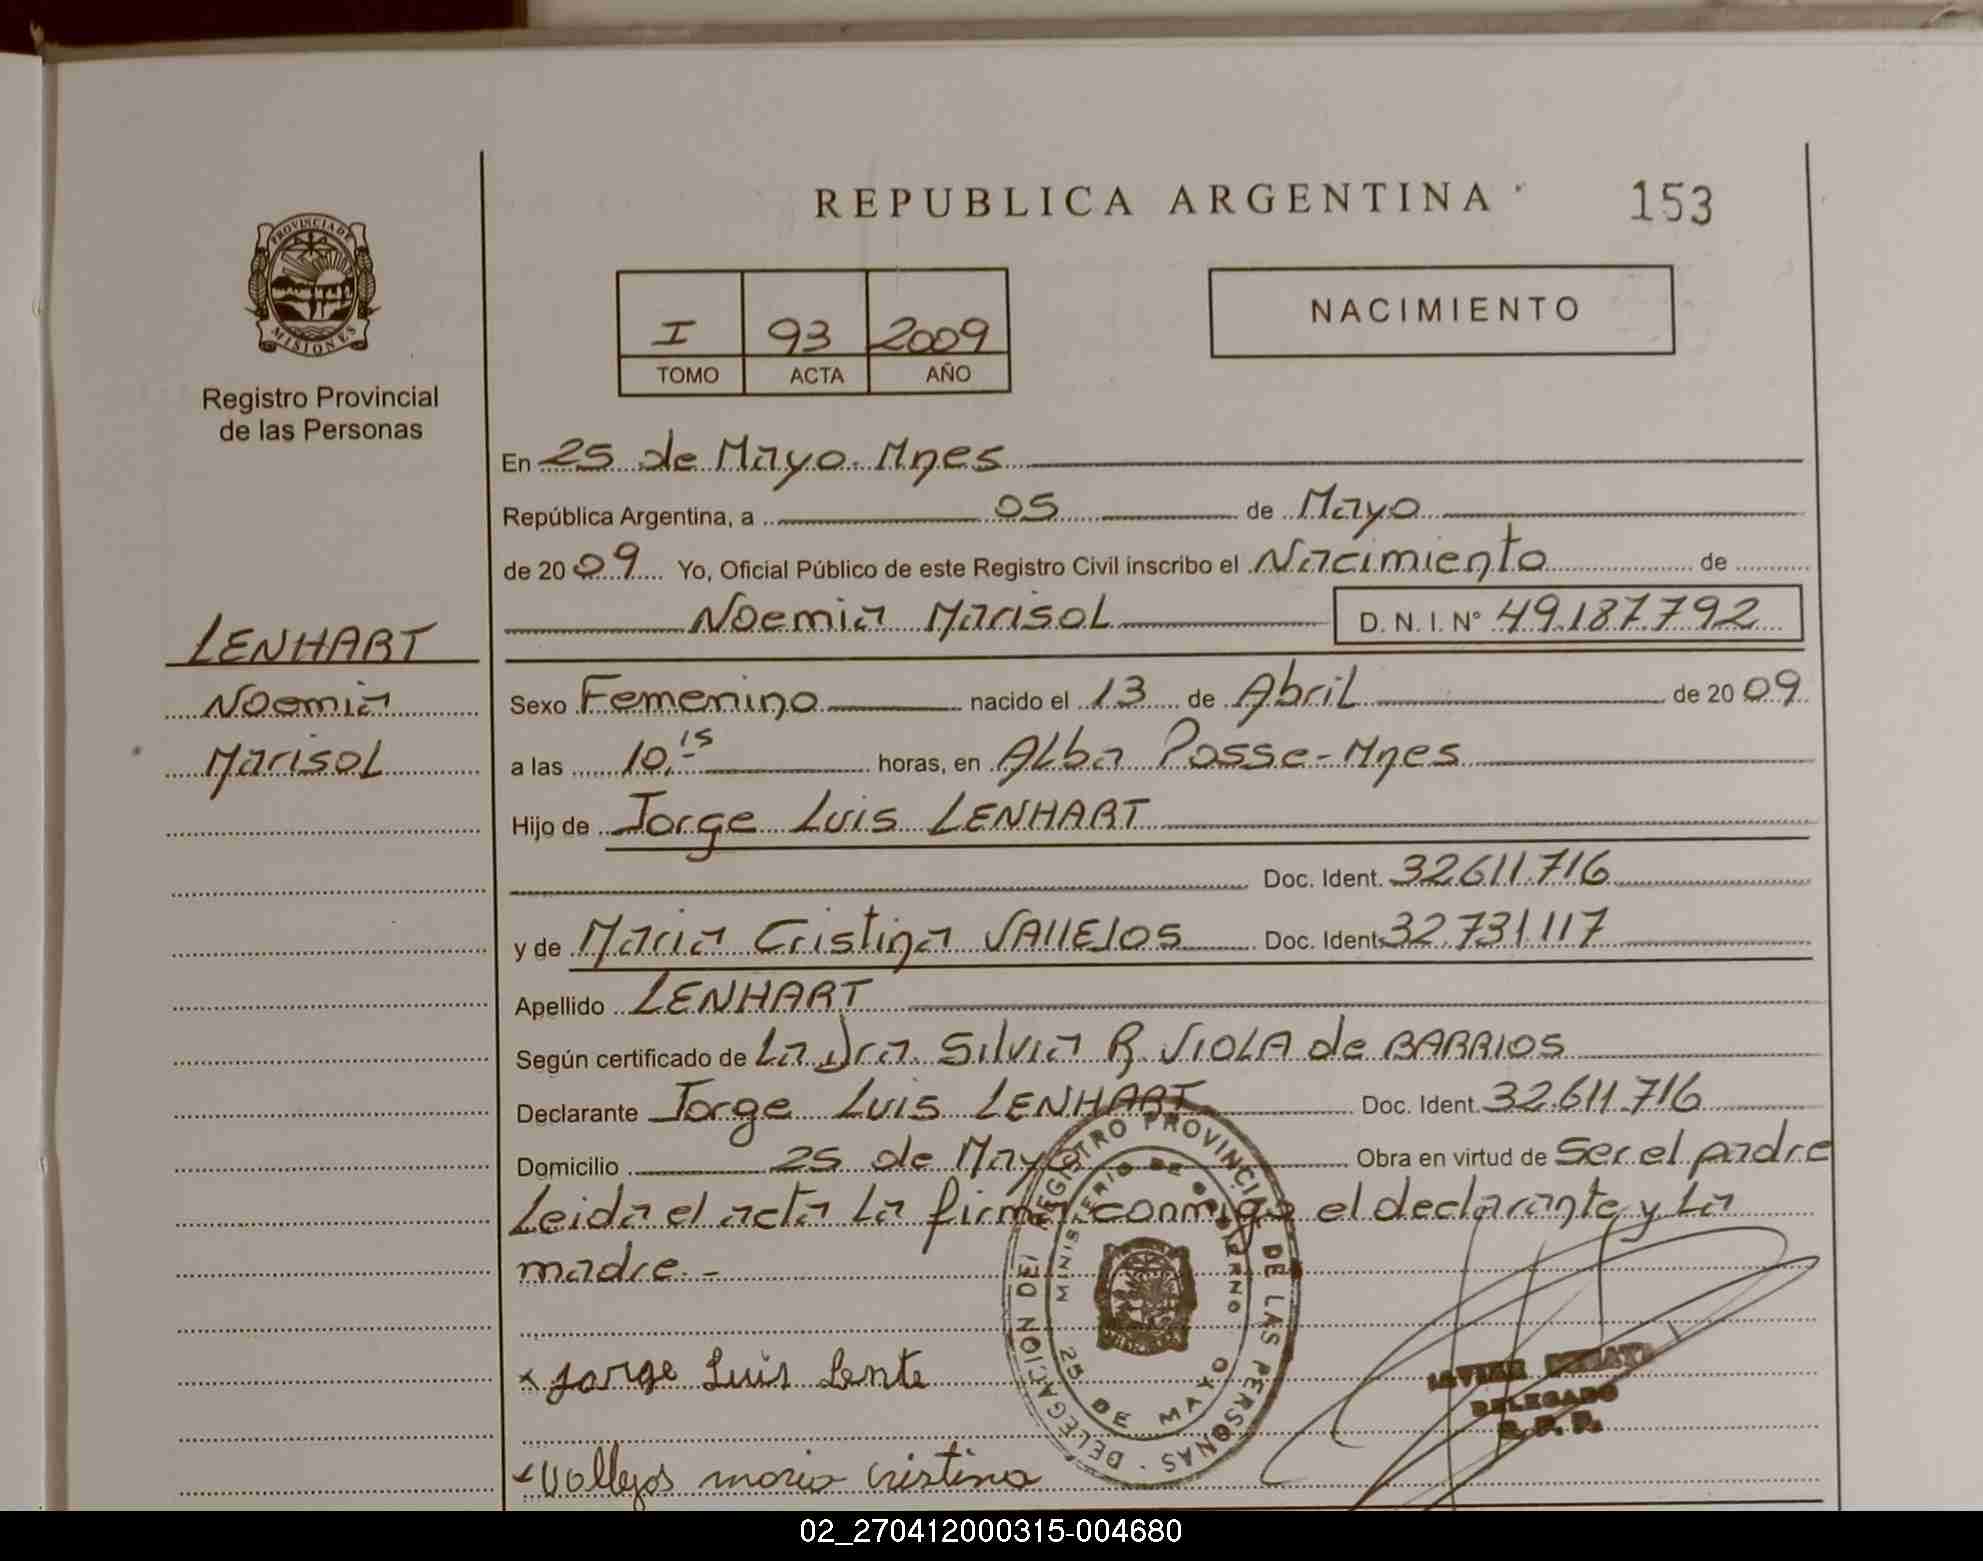 REPUBLICA ARGENTINA
153
PROVINCIA DE
MISIONES
Registro Provincial
de las Personas
I 93 2009
TOMO ACTA AÑO
NACIMIENTO
En 25 de Mayo. Mnes
República Argentina, a 05 de Mayo
de 2009 Yo, Oficial Público de este Registro Civil inscribo el Nacimiento de
Noemia Marisol D. N. I. Nº 49.187.792
LENHART
Noemia
Marisol
Sexo Femenino nacido el 13 de Abril de 2009
a las 10.15 horas, en Alba Posse-Mnes
Hijo de Jorge Luis LENHART
Doc. Ident. 32.611.716
y de Maria Cristina VALLEJOS Doc. Ident. 32.731.117
Apellido LENHART
Según certificado de La Dra. Silvia R. VIOLA de BARRIOS
Declarante Jorge Luis LENHART Doc. Ident. 32.611.716
Domicilio 25 de Mayo Obra en virtud de Ser el padre
Leida el acta la firma conmigo el declarante y la
madre.-
x Jorge Luis Lente
x Vallejos maria cristina
DELEGACION DEL REGISTRO PROVINCIAL DE LAS PERSONAS
MINISTERIO DE GOBIERNO
25 DE MAYO
JAVIER
DELEGADO
R. P. P.
02_270412000315-004680